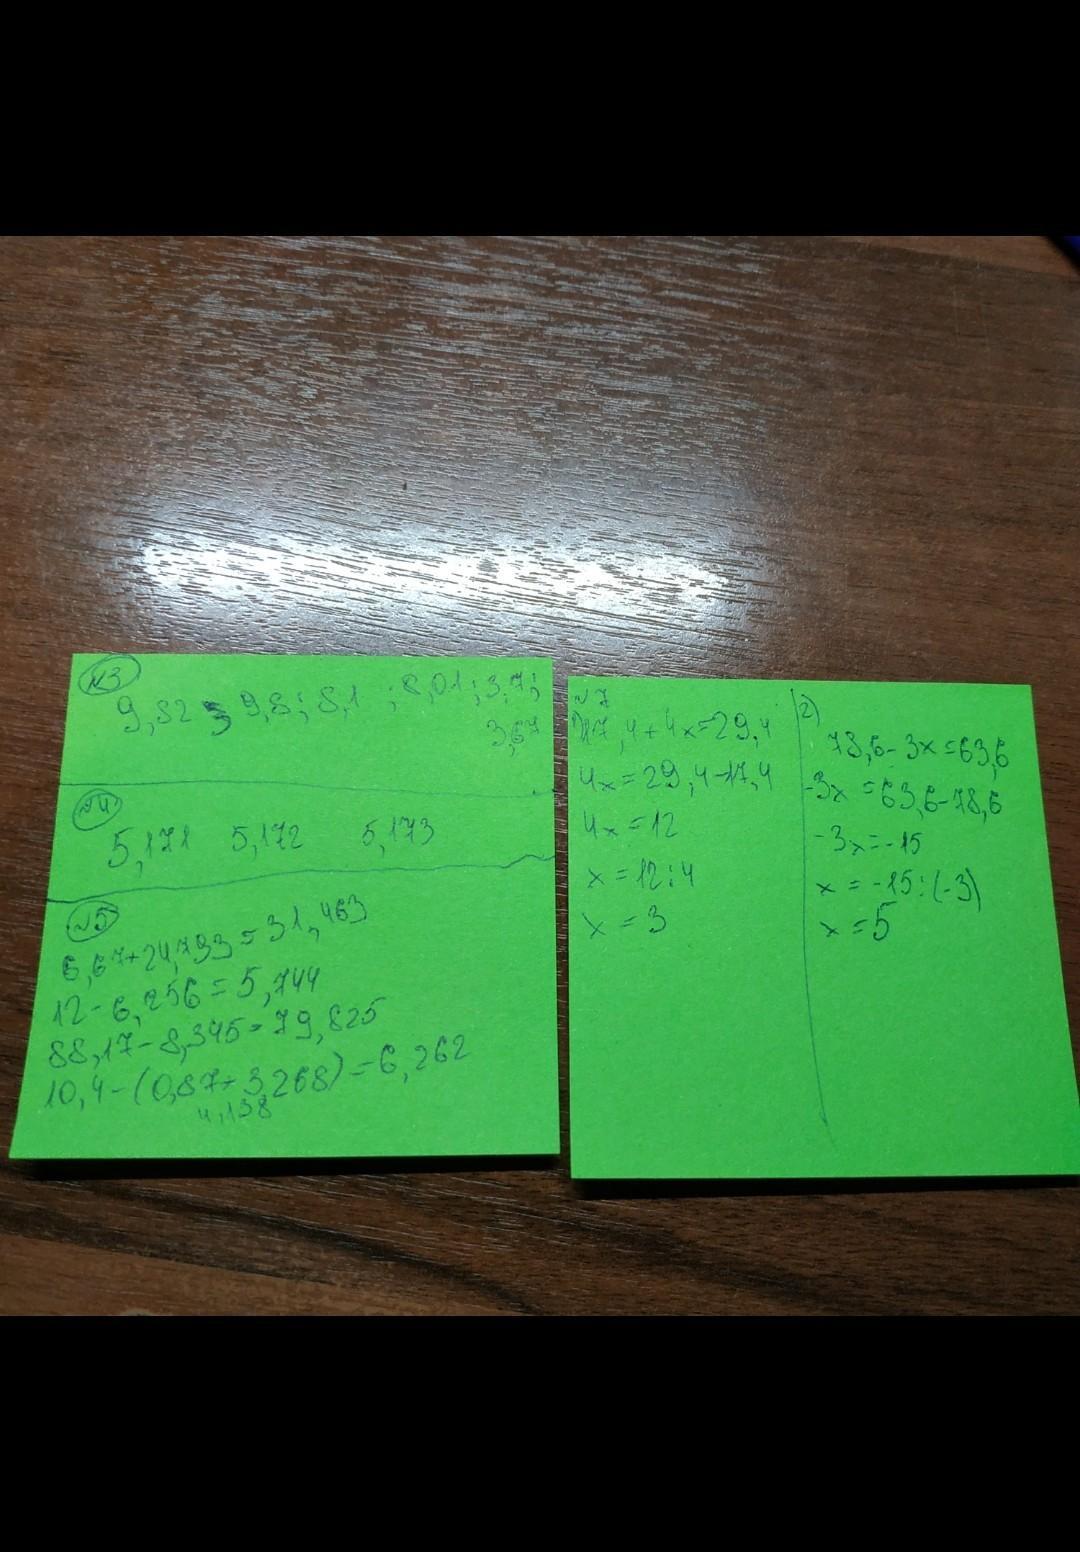 №3
9,82 ; 9,8; 8,1 ; 8,01; 3,7;
3,67
№4
5,171 5,172 5,173
№5
6,67+24,793=31,463
12-6,256=5,744
88,17-8,345=79,825
10,4-(0,87+3,268)=6,262
4,138
№7
1)17,4+4x=29,4
4x=29,4-17,4
4x=12
x=12:4
x=3
2)
78,6-3x=63,6
-3x=63,6-78,6
-3x=-15
x=-15:(-3)
x=5